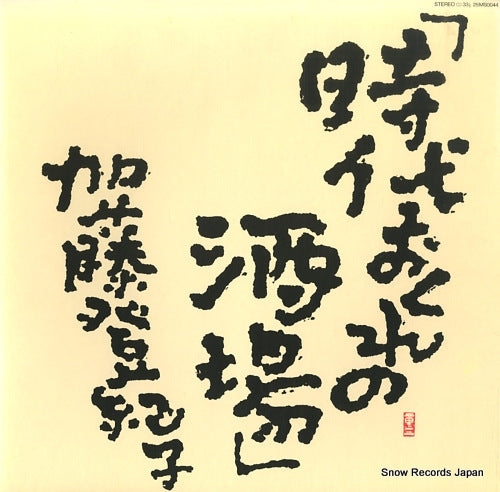 STEREO Ⓛ 33⅓ 25MS0044
「時代おくれの
酒場」
加藤登紀子
Snow Records Japan